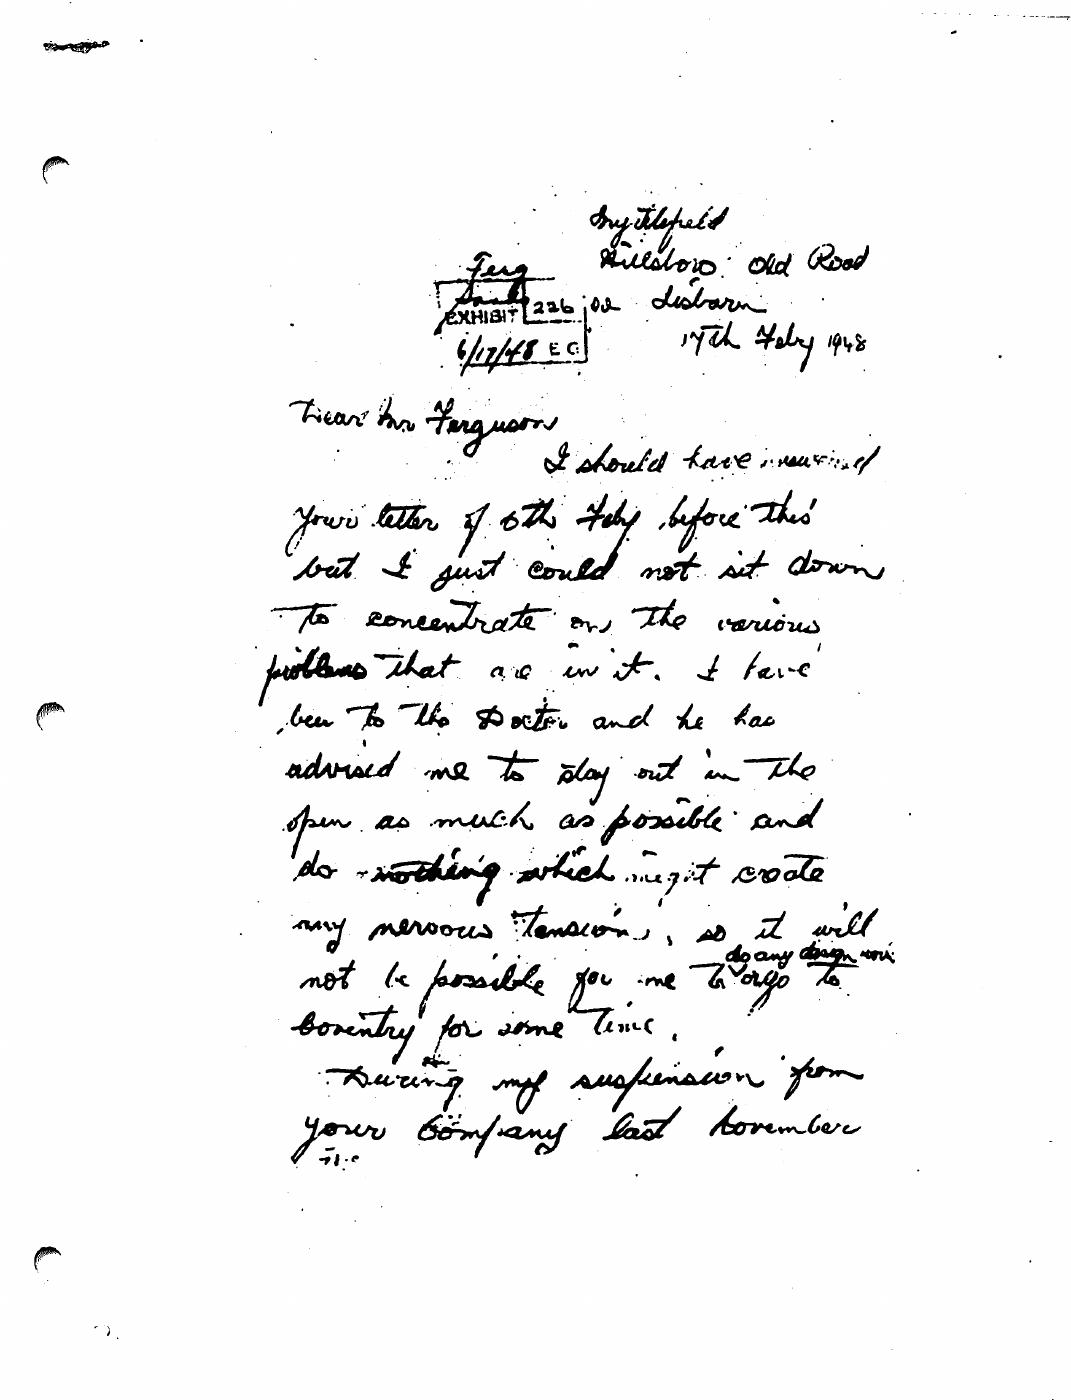 Myrtlefield
Hillsboro Old Road
Lisburn
17th Feby 1948
Ferg
EXHIBIT 226
6/17/48 EG
Dear Mr Ferguson
I should have answered
your letter of 6th Feby before this
but I just could not sit down
to concentrate on the various
problems that are in it. I have
been to the Doctor and he has
advised me to stay out in the
open as much as possible and
do nothing which might create
any nervous tension, so it will
do any design work
not be possible for me to or go to
Coventry for some time.
During my suspension from
your Company last November